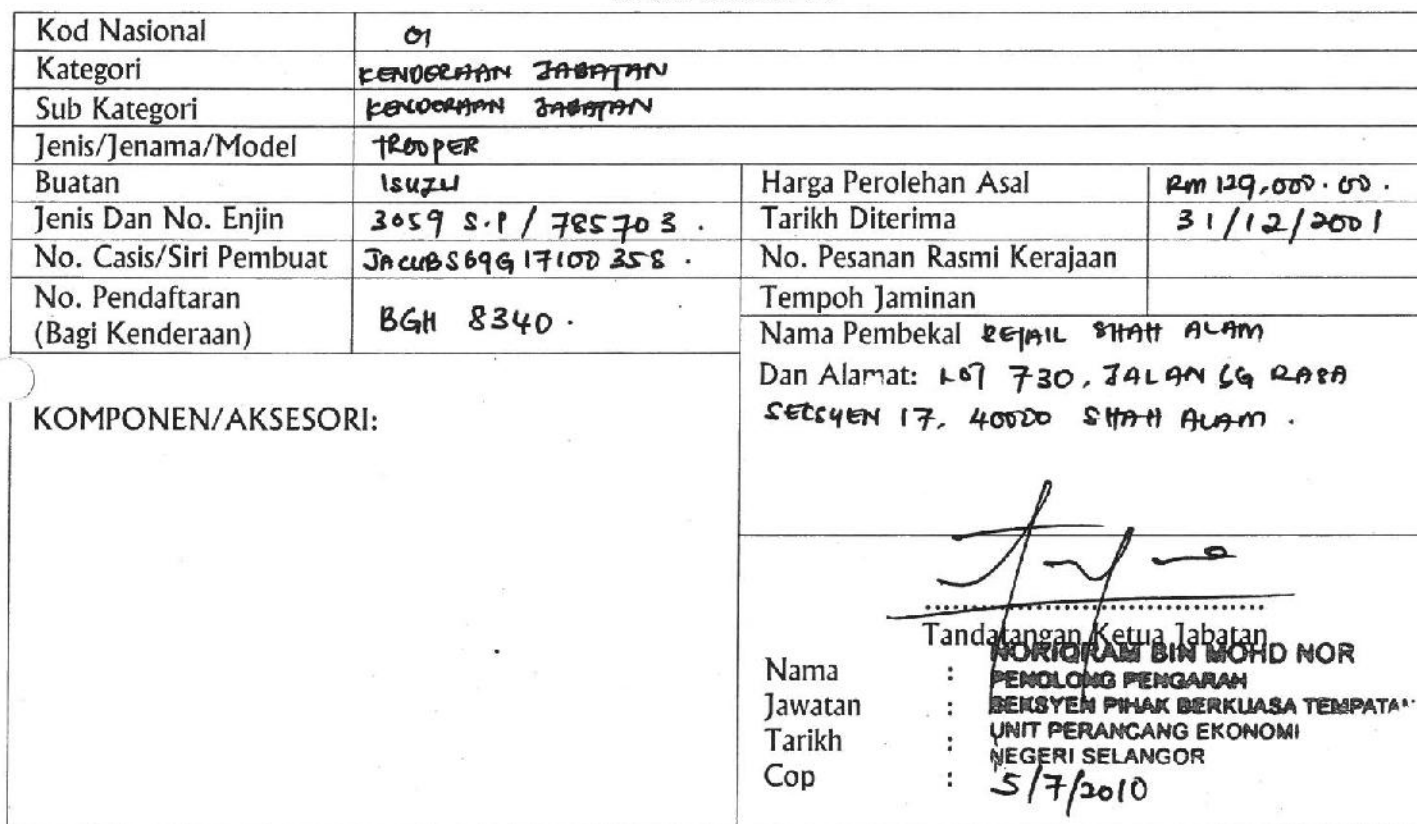 Kod Nasional 01
Kategori KENDERAAN JABATAN
Sub Kategori KENDERAAN JABATAN
Jenis/Jenama/Model TROOPER
Buatan ISUZU
Harga Perolehan Asal RM 129,000.00.
Jenis Dan No. Enjin 3059 S.P / 785703.
Tarikh Diterima 31/12/2001
No. Casis/Siri Pembuat JACUBS69G17100358.
No. Pesanan Rasmi Kerajaan
No. Pendaftaran
(Bagi Kenderaan) BGH 8340.
Tempoh Jaminan
Nama Pembekal REJAIL SHAH ALAM
Dan Alamat: LOT 730, JALAN SG RASA
SEKSYEN 17, 40000 SHAH ALAM.
KOMPONEN/AKSESORI:
Tandatangan Ketua Jabatan
Nama : NORIQRAM BIN MOHD NOR
PENOLONG PENGARAH
Jawatan : SEKSYEN PIHAK BERKUASA TEMPATAN
Tarikh : UNIT PERANCANG EKONOMI
NEGERI SELANGOR
Cop : 5/7/2010